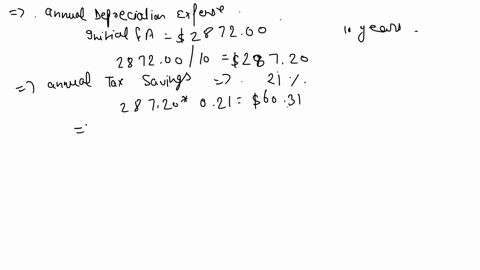 => . Annual Depreciation Expense .
Initial FA = $2872.00 10 years .
2872.00/10 = $287.20
=> annual Tax Savings => . 21 %.
287.20* 0.21 = $60.31
=>